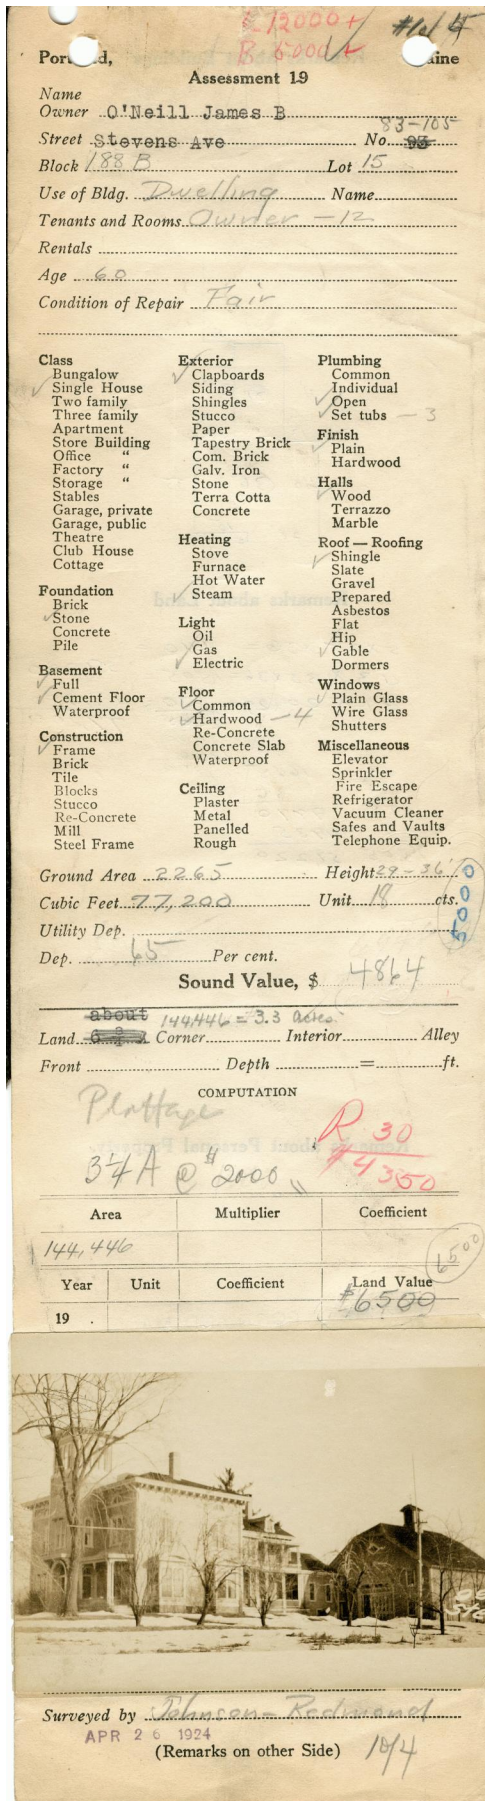 L 12000 +
B 5000 +
#1 of 5
Portland, Maine
Assessment 19
Name
Owner O'Neill James B
83-105
Street Stevens Ave No. 93
Block 188 B Lot 15
Use of Bldg. Dwelling Name
Tenants and Rooms Owner - 12
Rentals
Age 60
Condition of Repair Fair
Class
Bungalow
✓ Single House
Two family
Three family
Apartment
Store Building
Office "
Factory "
Storage "
Stables
Garage, private
Garage, public
Theatre
Club House
Cottage
Foundation
Brick
✓ Stone
Concrete
Pile
Basement
✓ Full
✓ Cement Floor
Waterproof
Construction
✓ Frame
Brick
Tile
Blocks
Stucco
Re-Concrete
Mill
Steel Frame
Exterior
✓ Clapboards
Siding
Shingles
Stucco
Paper
Tapestry Brick
Com. Brick
Galv. Iron
Stone
Terra Cotta
Concrete
Heating
Stove
Furnace
Hot Water
✓ Steam
Light
Oil
✓ Gas
✓ Electric
Floor
✓ Common
✓ Hardwood - 4
Re-Concrete
Concrete Slab
Waterproof
Ceiling
Plaster
Metal
Panelled
Rough
Plumbing
Common
Individual
✓ Open
✓ Set tubs - 3
Finish
✓ Plain
Hardwood
Halls
✓ Wood
Terrazzo
Marble
Roof — Roofing
✓ Shingle
Slate
Gravel
Prepared
Asbestos
Flat
Hip
✓ Gable
Dormers
Windows
✓ Plain Glass
Wire Glass
Shutters
Miscellaneous
Elevator
Sprinkler
Fire Escape
Refrigerator
Vacuum Cleaner
Safes and Vaults
Telephone Equip.
Ground Area 2265 Height 29-36'
Cubic Feet 77,200 Unit 18 cts.
5000
Utility Dep.
Dep. 65 Per cent.
Sound Value, $ 4864
about 144,446 = 3.3 acres
Land Corner Interior Alley
Front Depth = ft.
COMPUTATION
Plottage
R 30
$4350
3 1/4 A @ $2000
Area Multiplier Coefficient
144,446
6500
Year Unit Coefficient Land Value
19 . $6500
Surveyed by Johnson - Redmond
APR 26 1924
(Remarks on other Side) 10/4